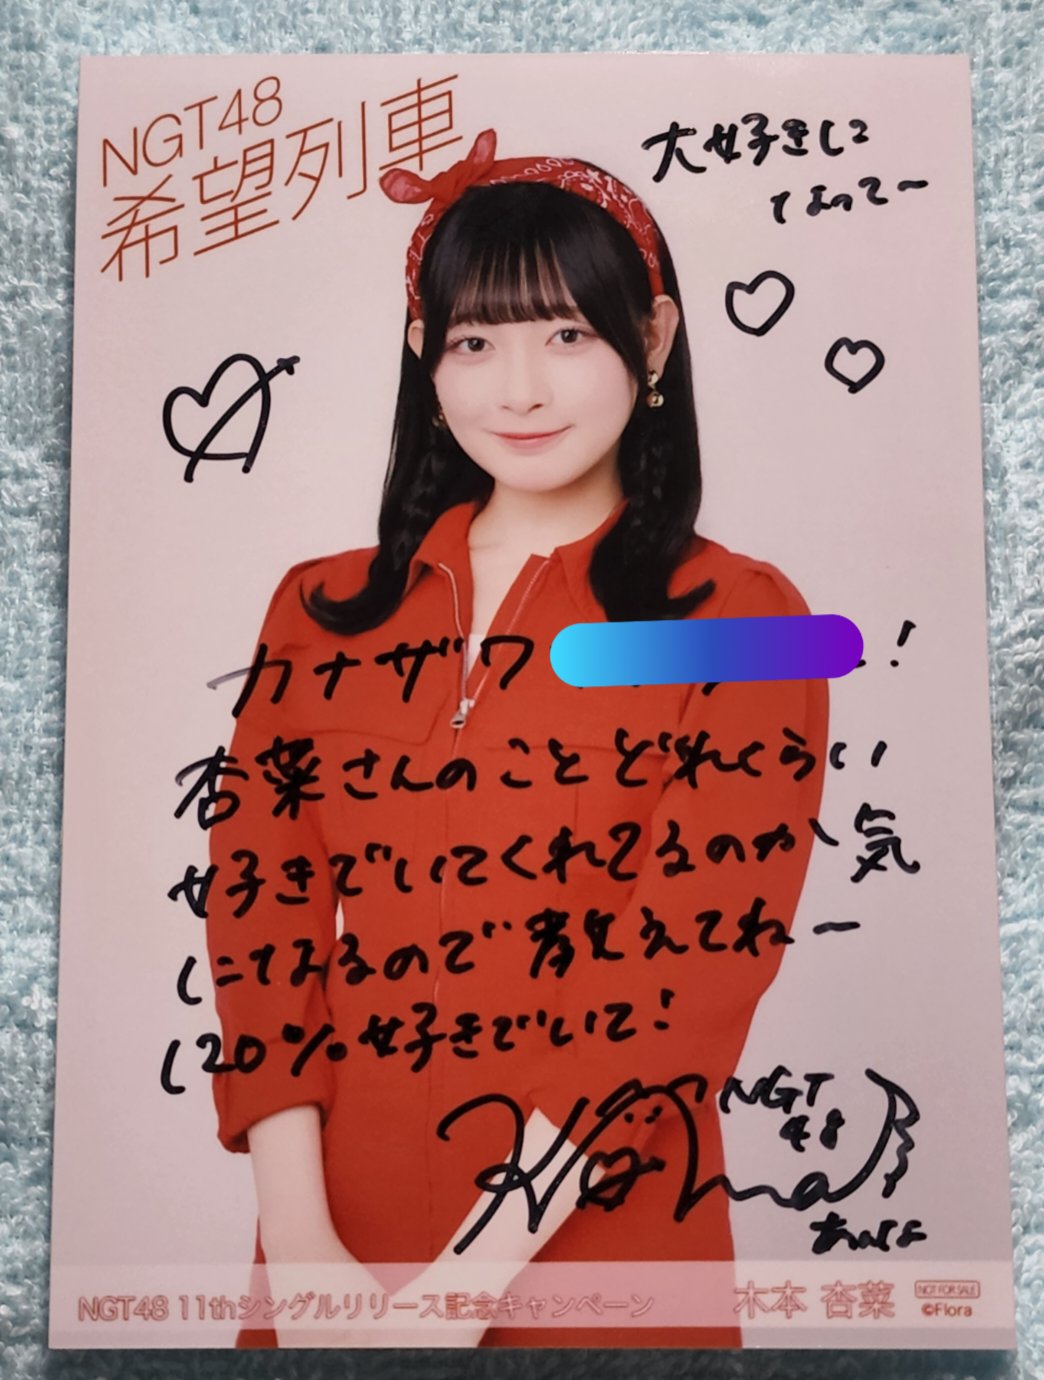 NGT48
希望列車
大好きに
なってー
カナザワ !
杏菜さんのことどれくらい
好きでいてくれてるのか気
になるので教えてねー
120%好きでいて!
NGT
48
NGT48 11thシングルリリース記念キャンペーン
木本 杏菜
NOT FOR SALE
©Flora